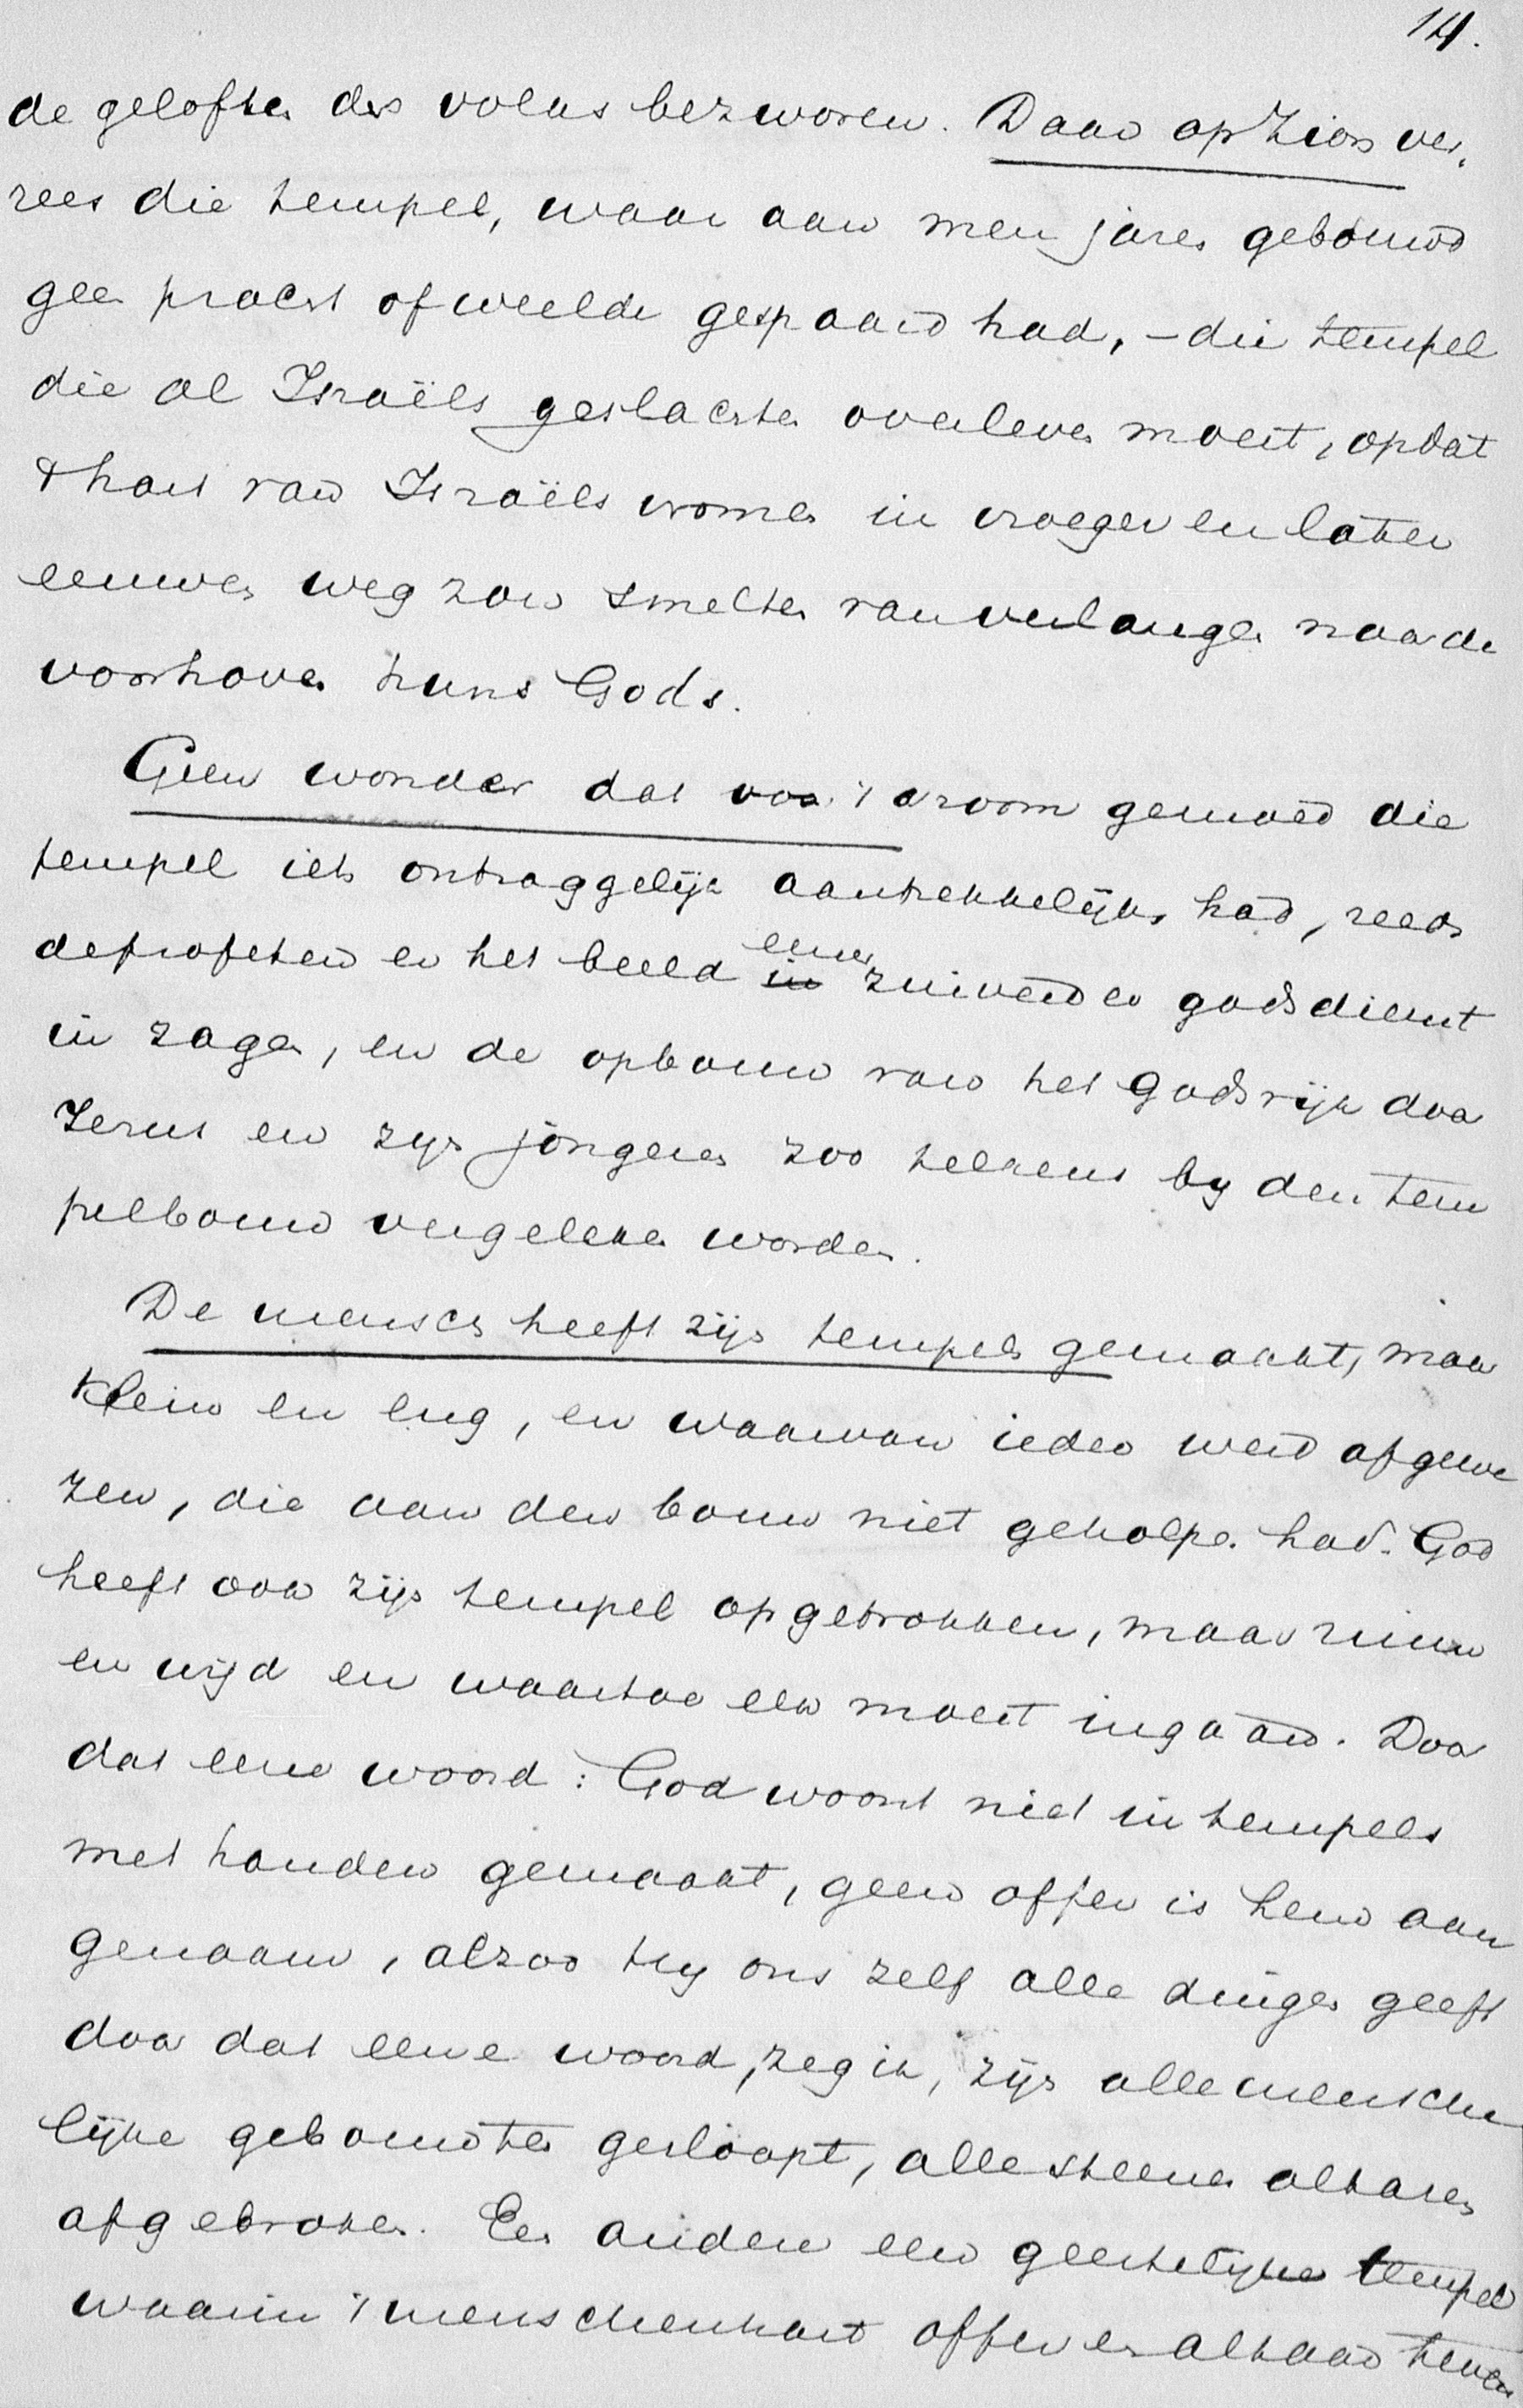 14.
de geloften des volks bezworen. Daar op Zion ver,
rees die tempel, waar aan men jaren gebouwd
geen pracht of weelde gespaard had, – die tempel
die al Israëls geslachten overleven moest, opdat
't hart van Israëls vromen in vroeger en later
eeuwen weg zou smelten van verlangen naar de
voorhoven huns Gods.
Geen wonder dat voor 't vroom gemoed die
tempel iets ontzaggelijk aantrekkelijks had, reeds
de profeten er het beeld eener zuiverder godsdienst
in zagen, en de opbouw van het Godsrijk door
Jezus en zijn jongeren zoo telkens by den tem
pelbouw vergeleken worden.
De mensch heeft zijn tempels gemaakt, maar
klein en eng, en waarvan ieder werd afgewe
zen, die aan den bouw niet geholpen had. God
heeft ook zijn tempel opgetrokken, maar ruim
en wijd en waartoe elk moest ingaan. Door
dat eene woord: God woont niet in tempels
met handen gemaakt, geen offer is hem aan
genaam, alzoo hy ons zelf alle dingen geeft
door dat eene woord, zeg ik, zijn alle mensche
lijke gebouwten gesloopt, alle steenen altaren
afgebroken. Een andere een geestelijke tempel
waarin 't menschenhart offer en altaar tevens